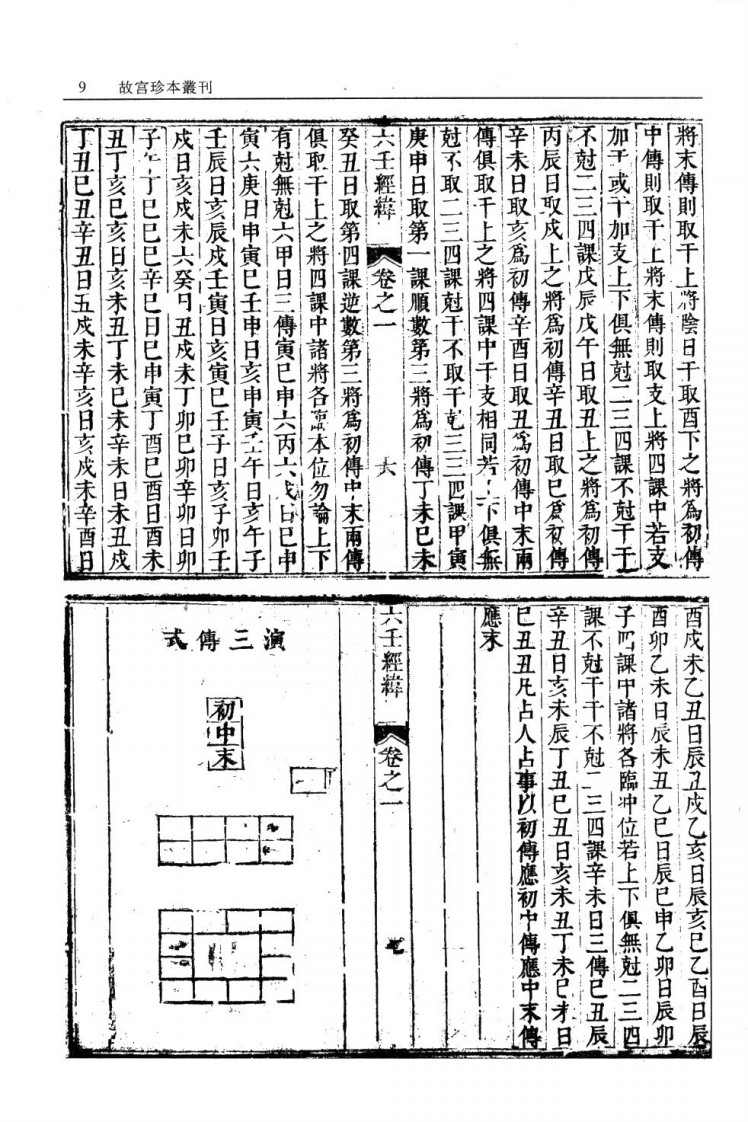 9 故宮珍本叢刊
將末傳則取干上將陰日干取酉下之將爲初傳
中傳則取干上將末傳則取支上將四課中若支
加干或干加支上下俱無尅二三四課不尅干干
不尅二三四課戊辰戊午日取丑上之將爲初傳
丙辰日取戌上之將爲初傳辛丑日取巳爲初傳
辛未日取亥爲初傳辛酉日取丑爲初傳中末兩
傳俱取干上之將四課中干支相同若上下俱無
尅不取二三四課尅干不取干尅二三四課甲寅
庚申日取第一課順數第三將爲初傳丁未己未
六壬經緯 卷之一 六
癸丑日取第四課逆數第三將爲初傳中末兩傳
俱取干上之將四課中諸將各臨本位勿論上下
有尅無尅六甲日三傳寅巳申六丙六戊日巳申
寅六庚日申寅巳壬申日亥申寅壬午日亥午子
壬辰日亥辰戌壬寅日亥寅巳壬子日亥子卯壬
戌日亥戌未六癸日丑戌未丁卯己卯辛卯日卯
子午丁巳己巳辛巳日巳申寅丁酉己酉日酉未
丑丁亥己亥日亥未丑丁未己未辛未日未丑戌
丁丑己丑辛丑日丑戌未辛亥日亥戌未辛酉日
酉戌未乙丑日辰丑戌乙亥日辰亥巳乙酉日辰
酉卯乙未日辰未丑乙巳日辰巳申乙卯日辰卯
子四課中諸將各臨冲位若上下俱無尅二三四
課不尅干干不尅二三四課辛未日三傳巳丑辰
辛丑日亥未辰丁丑己丑日亥未丑丁未己未日
巳丑丑凡占人占事以初傳應初中傳應中末傳
應末
六壬經緯 卷之一 七
演三傳式
初
中
末